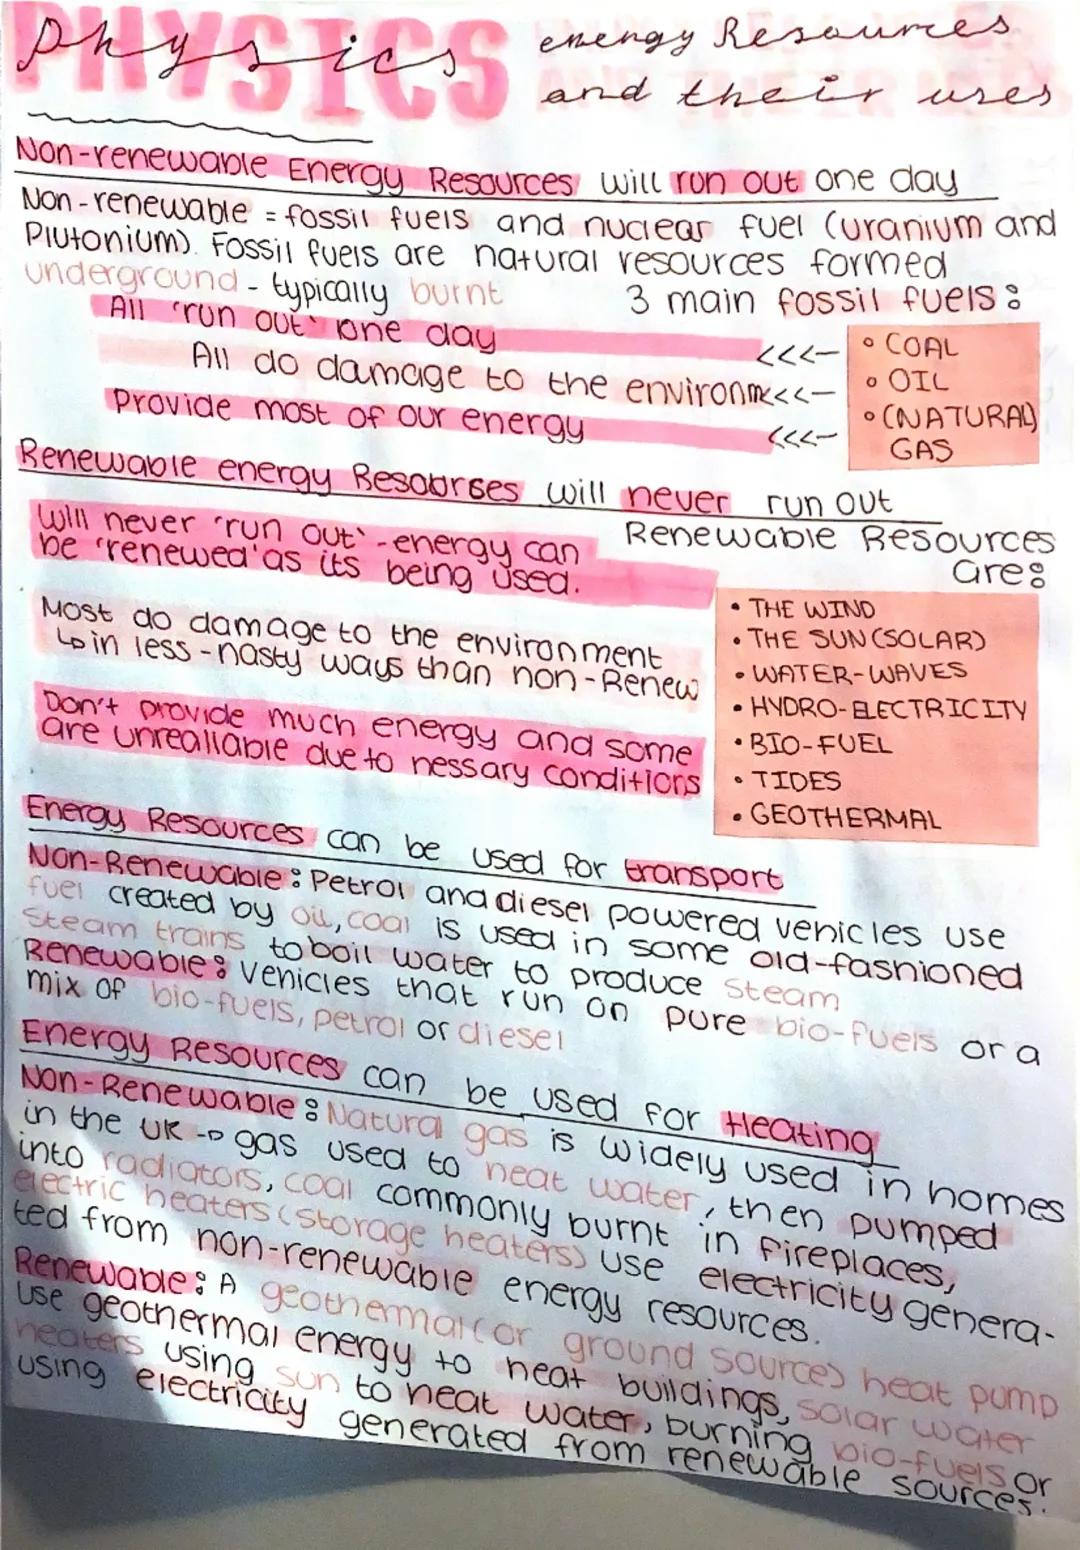 PHYSICS
physics
energy Resources
and their uses
Non-renewable Energy Resources will run out one day
Non-renewable = fossil fuels and nuclear fuel (uranium and
Plutonium). Fossil fuels are natural resources formed
underground - typically burnt
3 main fossil fuels:
All 'run out' one day <<<-
All do damage to the environm<<<-
Provide most of our energy <<<-
• COAL
• OIL
• (NATURAL)
GAS
Renewable energy Resourses will never run out
Will never 'run out' - energy can
be 'renewed' as its being used.
Renewable Resources
are:
Most do damage to the environment
↳ in less-nasty ways than non-Renew
Don't provide much energy and some
are unreallable due to nessary conditions
• THE WIND
• THE SUN (SOLAR)
• WATER-WAVES
• HYDRO-ELECTRICITY
• BIO-FUEL
• TIDES
• GEOTHERMAL
Energy Resources can be used for transport
Non-Renewable: Petrol and diesel powered vehicles use
fuel created by oil, coal is used in some old-fashioned
Steam trains to boil water to produce steam
Renewable: Vehicles that run on pure bio-fuels or a
mix of bio-fuels, petrol or diesel
Energy Resources can be used for Heating
Non-Renewable: Natural gas is widely used in homes
in the UK -> gas used to heat water, then pumped
into radiators, coal commonly burnt in fireplaces,
electric heaters (storage heaters) use electricity genera-
ted from non-renewable energy resources.
Renewable: A geothermal (or ground source) heat pump
use geothermal energy to heat buildings, solar water
heaters using sun to heat water, burning bio-fuels or
using electricity generated from renewable sources.